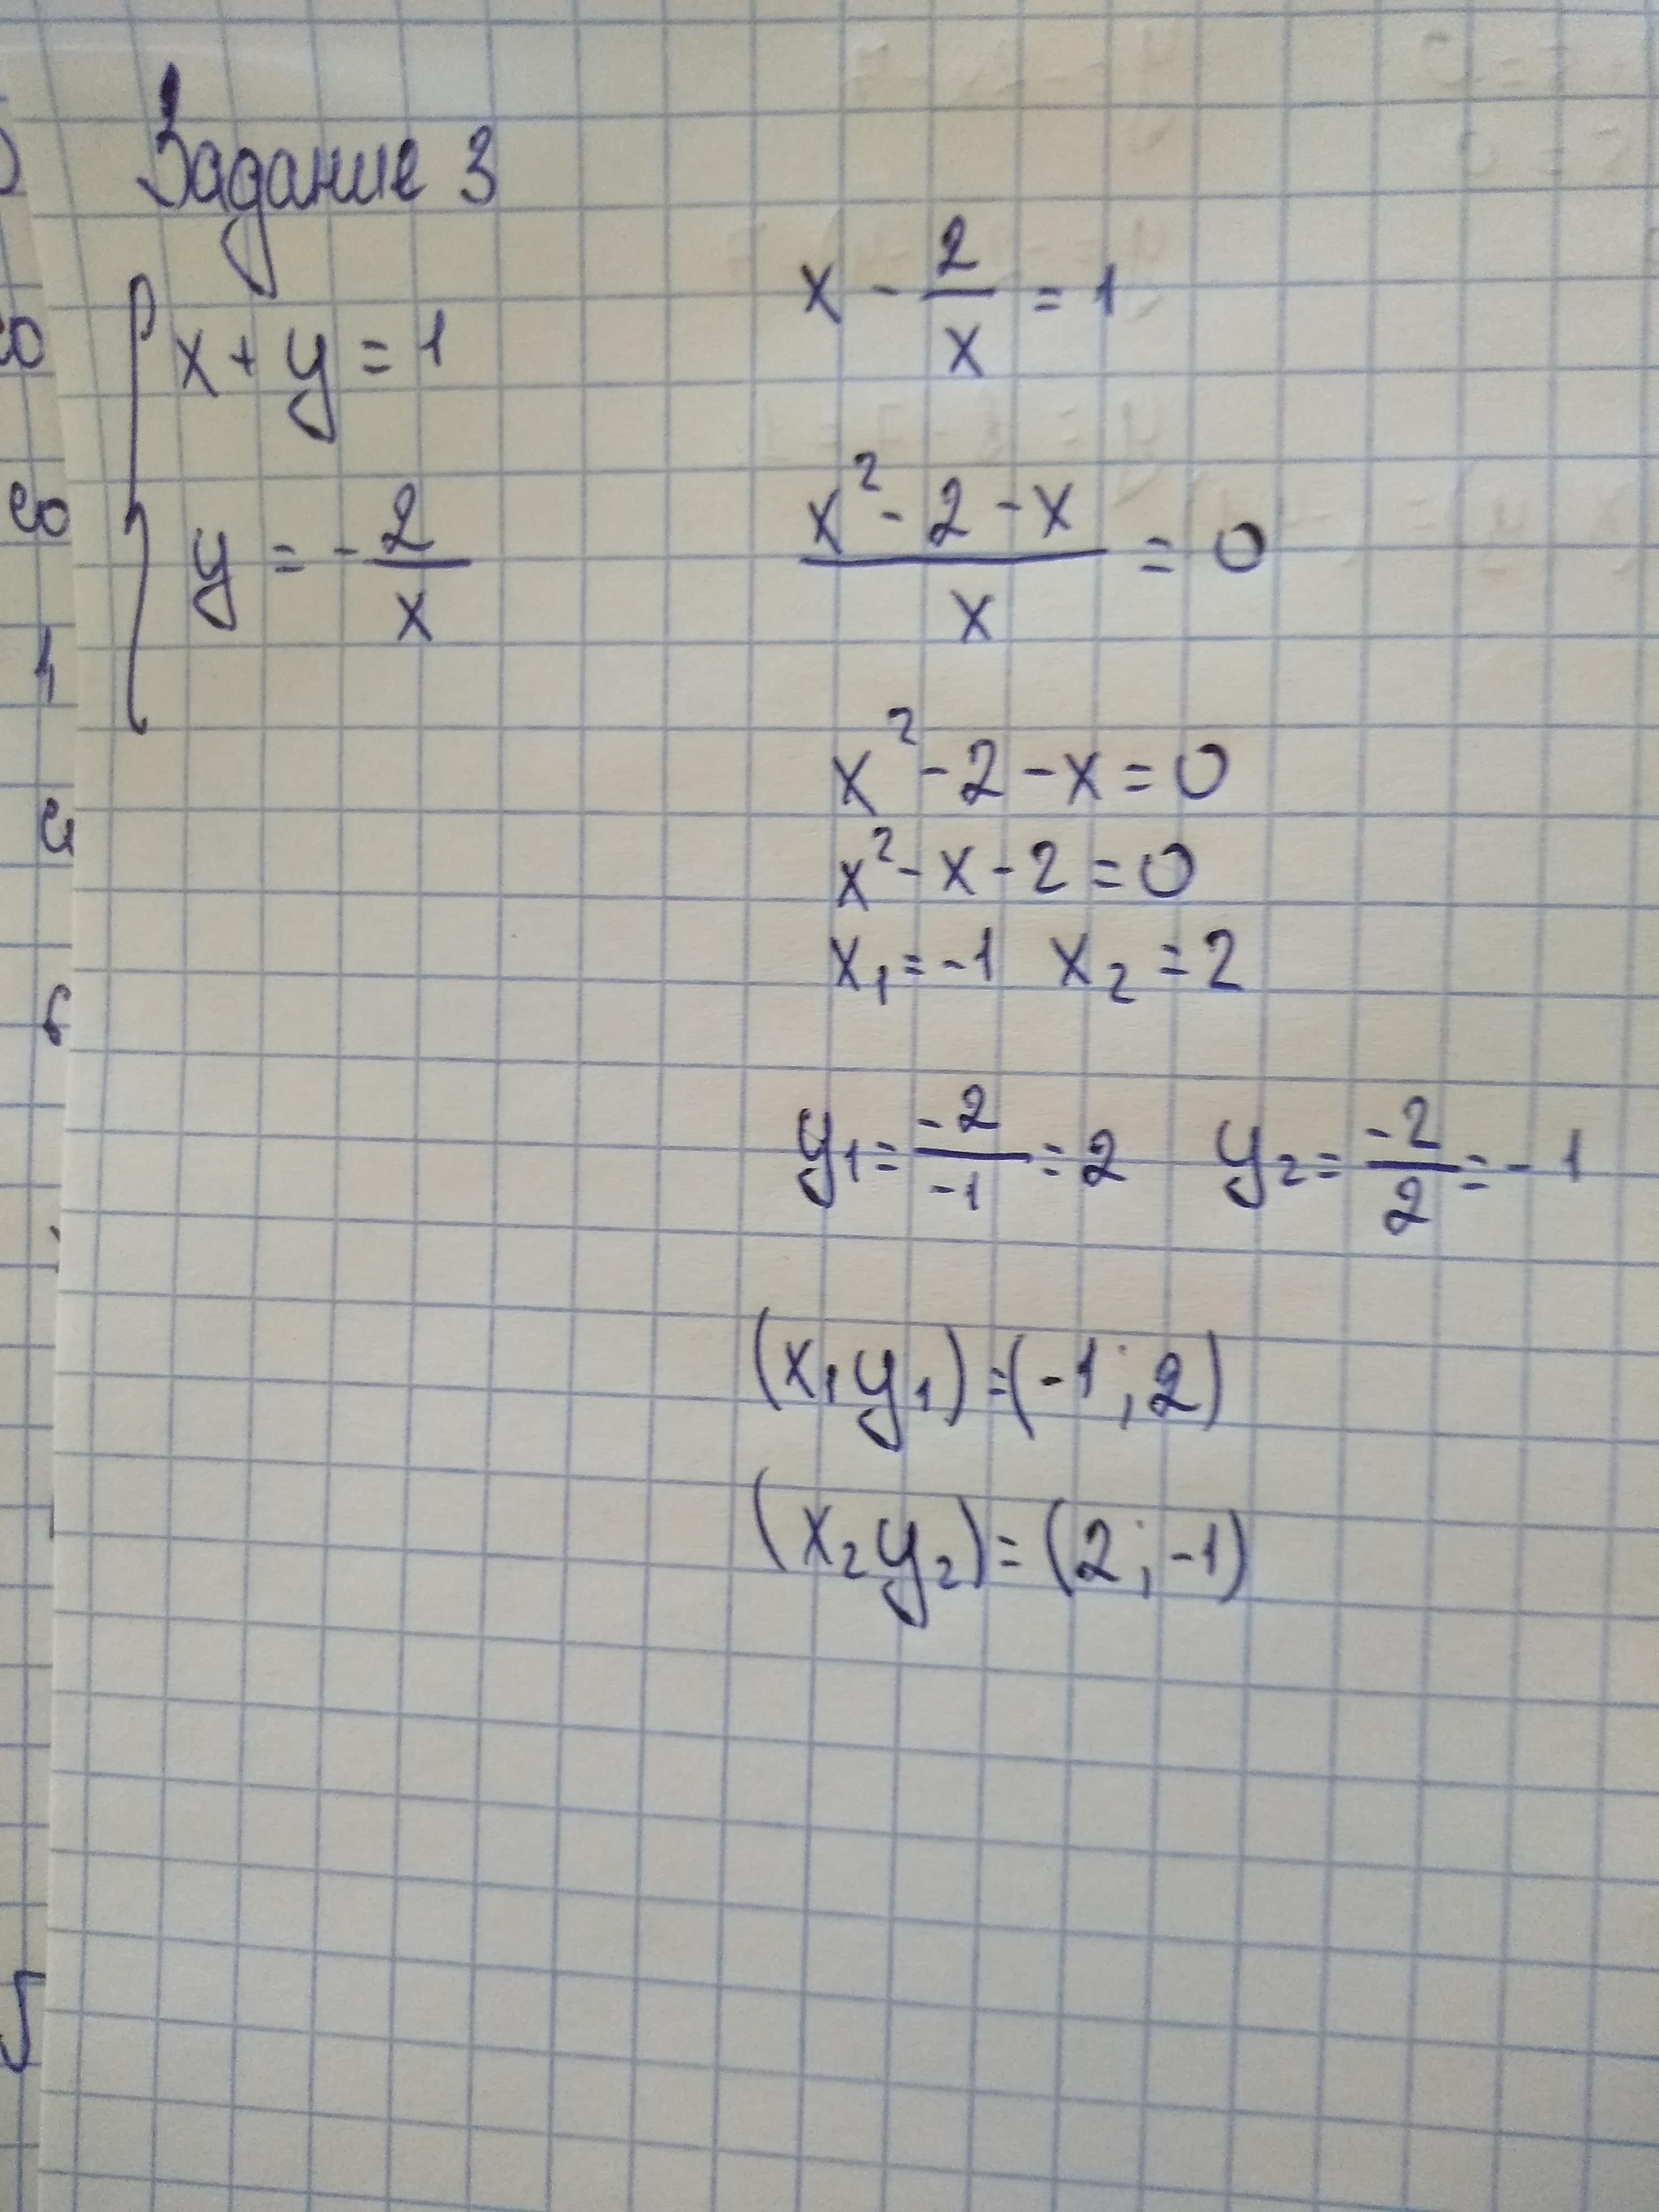 Задание 3
x + y = 1
y = - 2/x
x - 2/x = 1
(x² - 2 - x)/x = 0
x² - 2 - x = 0
x² - x - 2 = 0
x₁ = -1 x₂ = 2
y₁ = -2/-1 = 2 y₂ = -2/2 = -1
(x₁y₁) = (-1; 2)
(x₂y₂) = (2; -1)